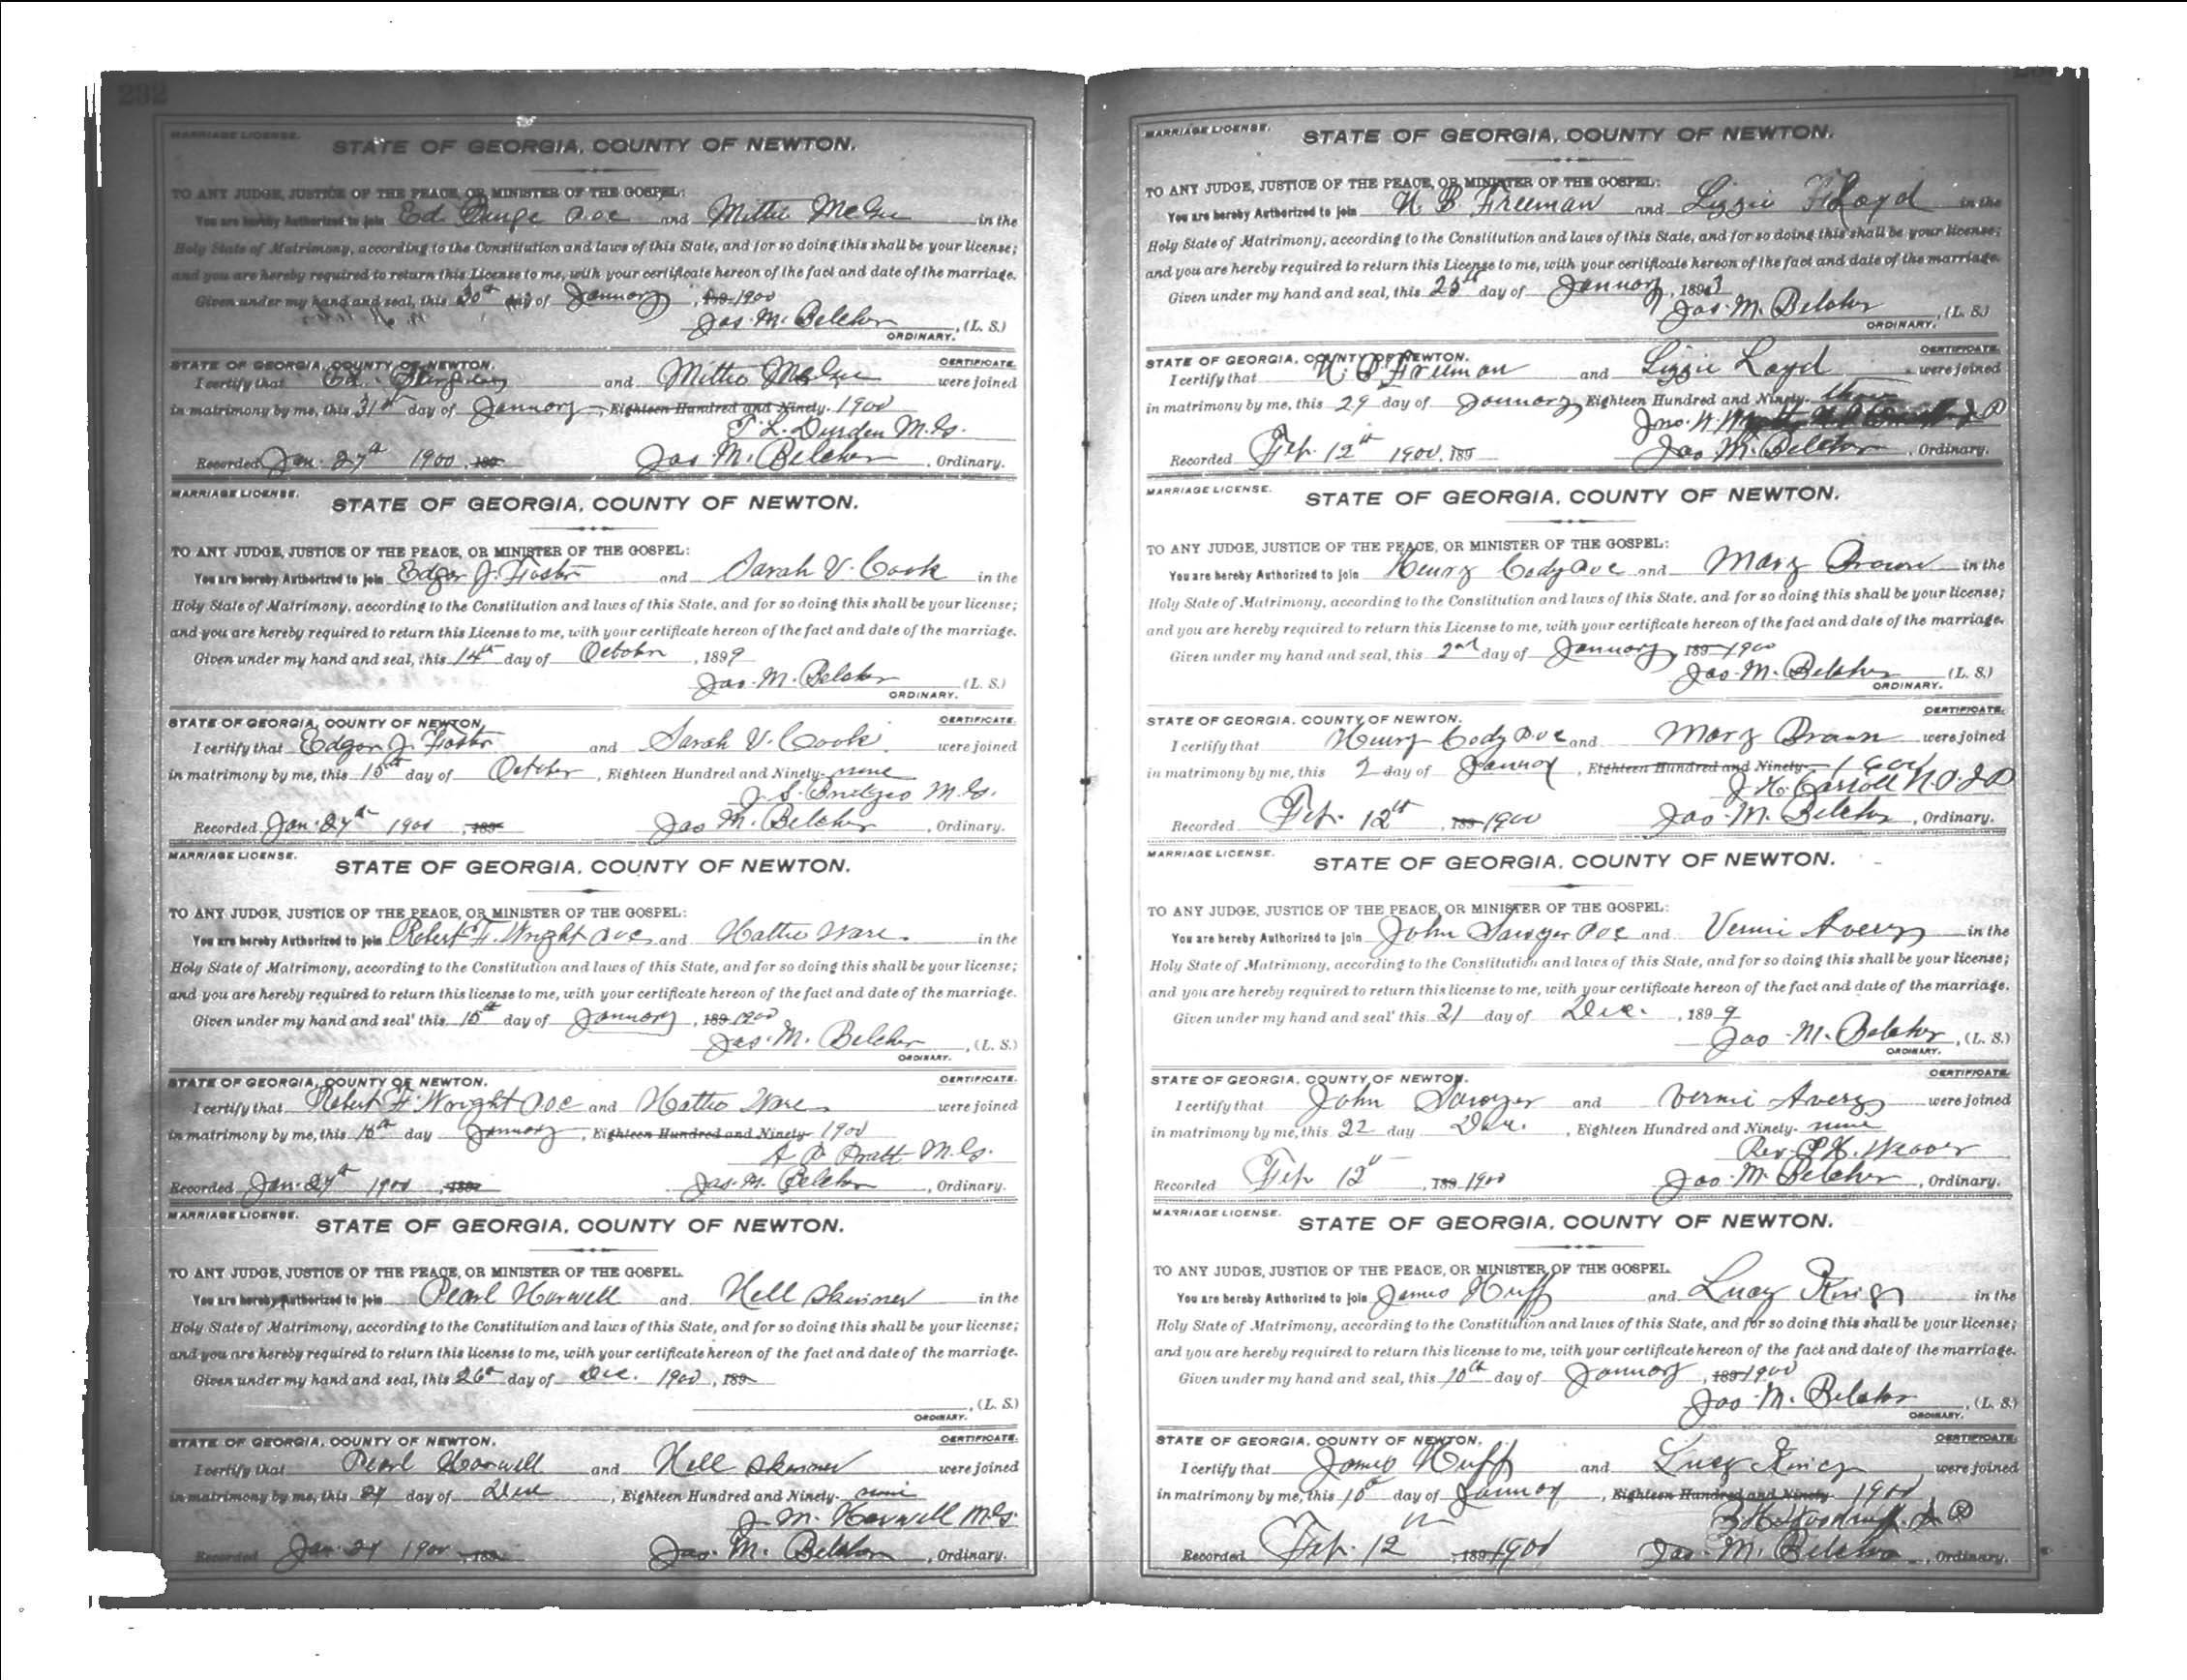 232
MARRIAGE LICENSE.
STATE OF GEORGIA, COUNTY OF NEWTON.
TO ANY JUDGE, JUSTICE OF THE PEACE, OR MINISTER OF THE GOSPEL:
You are hereby Authorized to join Ed and Mittie McGee in the
Holy State of Matrimony, according to the Constitution and laws of this State, and for so doing this shall be your license;
and you are hereby required to return this License to me, with your certificate hereon of the fact and date of the marriage.
Given under my hand and seal, this 30th day of January, 1900
Jas. M. Belcher, (L. S.)
ORDINARY.
STATE OF GEORGIA, COUNTY OF NEWTON. CERTIFICATE.
I certify that Ed. and Mittie McGee were joined
in matrimony by me, this 31st day of January, Eighteen Hundred and Ninety- 1900
T. L. Durden M.G.
Recorded Jan. 27th 1900, 189 Jas M. Belcher, Ordinary.
MARRIAGE LICENSE.
STATE OF GEORGIA, COUNTY OF NEWTON.
TO ANY JUDGE, JUSTICE OF THE PEACE, OR MINISTER OF THE GOSPEL:
You are hereby Authorized to join Edgar J. Foster and Sarah V. Cook in the
Holy State of Matrimony, according to the Constitution and laws of this State, and for so doing this shall be your license;
and you are hereby required to return this License to me, with your certificate hereon of the fact and date of the marriage.
Given under my hand and seal, this 14th day of October, 1899
Jas. M. Belcher (L. S.)
ORDINARY.
STATE OF GEORGIA, COUNTY OF NEWTON, CERTIFICATE.
I certify that Edgar J. Foster and Sarah V. Cook were joined
in matrimony by me, this 15th day of October, Eighteen Hundred and Ninety- nine
J. S. M.G.
Recorded Jan. 27th 1900, 189 Jas M. Belcher, Ordinary.
MARRIAGE LICENSE.
STATE OF GEORGIA, COUNTY OF NEWTON.
TO ANY JUDGE, JUSTICE OF THE PEACE, OR MINISTER OF THE GOSPEL:
You are hereby Authorized to join Robert F. Wright and Hattie Ware in the
Holy State of Matrimony, according to the Constitution and laws of this State, and for so doing this shall be your license;
and you are hereby required to return this license to me, with your certificate hereon of the fact and date of the marriage.
Given under my hand and seal' this 15th day of January, 189 1900
Jas. M. Belcher, (L. S.)
ORDINARY.
STATE OF GEORGIA, COUNTY OF NEWTON. CERTIFICATE.
I certify that Robert F. Wright and Hattie Ware were joined
in matrimony by me, this 15th day January, Eighteen Hundred and Ninety- 1900
Pratt M.G.
Recorded Jan. 27th 1900, 189 Jas. M. Belcher, Ordinary.
MARRIAGE LICENSE.
STATE OF GEORGIA, COUNTY OF NEWTON.
TO ANY JUDGE, JUSTICE OF THE PEACE, OR MINISTER OF THE GOSPEL.
You are hereby Authorized to join Pearl Harwell and Nell Skinner in the
Holy State of Matrimony, according to the Constitution and laws of this State, and for so doing this shall be your license;
and you are hereby required to return this license to me, with your certificate hereon of the fact and date of the marriage.
Given under my hand and seal, this 26th day of Dec. 1900, 189
, (L. S.)
ORDINARY.
STATE OF GEORGIA, COUNTY OF NEWTON. CERTIFICATE.
I certify that Pearl Harwell and Nell Skinner were joined
in matrimony by me, this 27 day of Dec, Eighteen Hundred and Ninety- nine
J. M. Harwell M.G.
Recorded Jan. 27 1900, 189 Jas. M. Belcher, Ordinary.
MARRIAGE LICENSE.
STATE OF GEORGIA, COUNTY OF NEWTON.
TO ANY JUDGE, JUSTICE OF THE PEACE, OR MINISTER OF THE GOSPEL:
You are hereby Authorized to join B Freeman and Lizzie Loyd in the
Holy State of Matrimony, according to the Constitution and laws of this State, and for so doing this shall be your license;
and you are hereby required to return this License to me, with your certificate hereon of the fact and date of the marriage.
Given under my hand and seal, this 25th day of January, 1893
Jas. M. Belcher, (L. S.)
ORDINARY.
STATE OF GEORGIA, COUNTY OF NEWTON. CERTIFICATE.
I certify that B Freeman and Lizzie Loyd were joined
in matrimony by me, this 29 day of January, Eighteen Hundred and Ninety-
Jno.
Recorded Feb. 12th 1900, 189 Jas M. Belcher, Ordinary.
MARRIAGE LICENSE.
STATE OF GEORGIA, COUNTY OF NEWTON.
TO ANY JUDGE, JUSTICE OF THE PEACE, OR MINISTER OF THE GOSPEL:
You are hereby Authorized to join Henry Cody and Mary Brown in the
Holy State of Matrimony, according to the Constitution and laws of this State, and for so doing this shall be your license;
and you are hereby required to return this License to me, with your certificate hereon of the fact and date of the marriage.
Given under my hand and seal, this 2nd day of January, 189 1900
Jas. M. Belcher (L. S.)
ORDINARY.
STATE OF GEORGIA, COUNTY OF NEWTON. CERTIFICATE.
I certify that Henry Cody and Mary Brown were joined
in matrimony by me, this 2 day of January, Eighteen Hundred and Ninety- 1900
J. H. Carroll N. P. J P
Recorded Feb. 12th, 189 1900 Jas. M. Belcher, Ordinary.
MARRIAGE LICENSE.
STATE OF GEORGIA, COUNTY OF NEWTON.
TO ANY JUDGE, JUSTICE OF THE PEACE, OR MINISTER OF THE GOSPEL:
You are hereby Authorized to join John Sawyer and Vernie Avery in the
Holy State of Matrimony, according to the Constitution and laws of this State, and for so doing this shall be your license;
and you are hereby required to return this license to me, with your certificate hereon of the fact and date of the marriage.
Given under my hand and seal' this 21 day of Dec., 1899
Jas. M. Belcher, (L. S.)
ORDINARY.
STATE OF GEORGIA, COUNTY OF NEWTON. CERTIFICATE.
I certify that John Sawyer and Vernie Avery were joined
in matrimony by me, this 22 day Dec., Eighteen Hundred and Ninety- nine
Rev. Weaver
Recorded Feb 12th, 189 1900 Jas. M. Belcher, Ordinary.
MARRIAGE LICENSE.
STATE OF GEORGIA, COUNTY OF NEWTON.
TO ANY JUDGE, JUSTICE OF THE PEACE, OR MINISTER OF THE GOSPEL.
You are hereby Authorized to join James Huff and Lucy King in the
Holy State of Matrimony, according to the Constitution and laws of this State, and for so doing this shall be your license;
and you are hereby required to return this license to me, with your certificate hereon of the fact and date of the marriage.
Given under my hand and seal, this 10th day of January, 189 1900
Jas. M. Belcher, (L. S.)
ORDINARY.
STATE OF GEORGIA, COUNTY OF NEWTON. CERTIFICATE.
I certify that James Huff and Lucy King were joined
in matrimony by me, this 10th day of January, Eighteen Hundred and Ninety- 1900
Woodruff J P
Recorded Feb. 12th, 189 1900 Jas. M. Belcher, Ordinary.